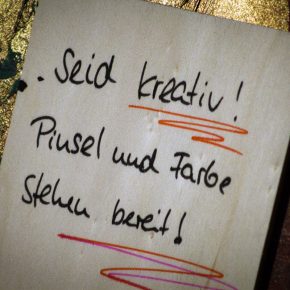 Seid kreativ!
Pinsel und Farbe
stehen bereit!